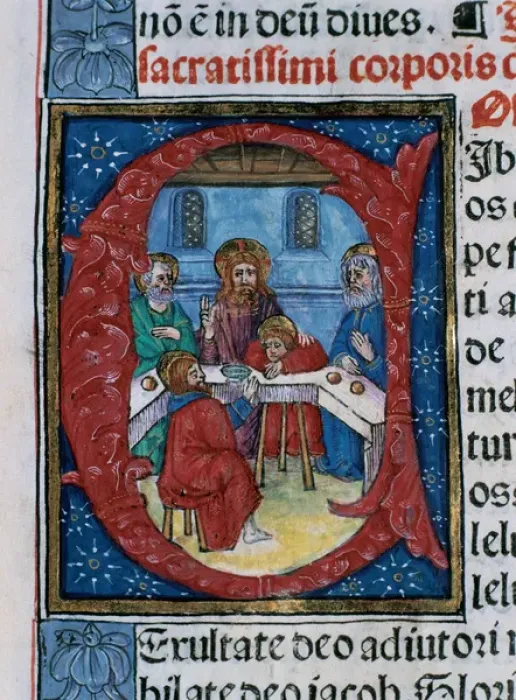 nō ē in deū diues. ¶
sacratissimi corporis
C
Ib
os
pe
ti a
de
mel
tur
oss
lelu
lelu
Exultate deo adiutori
bilate deo jacob. Glori